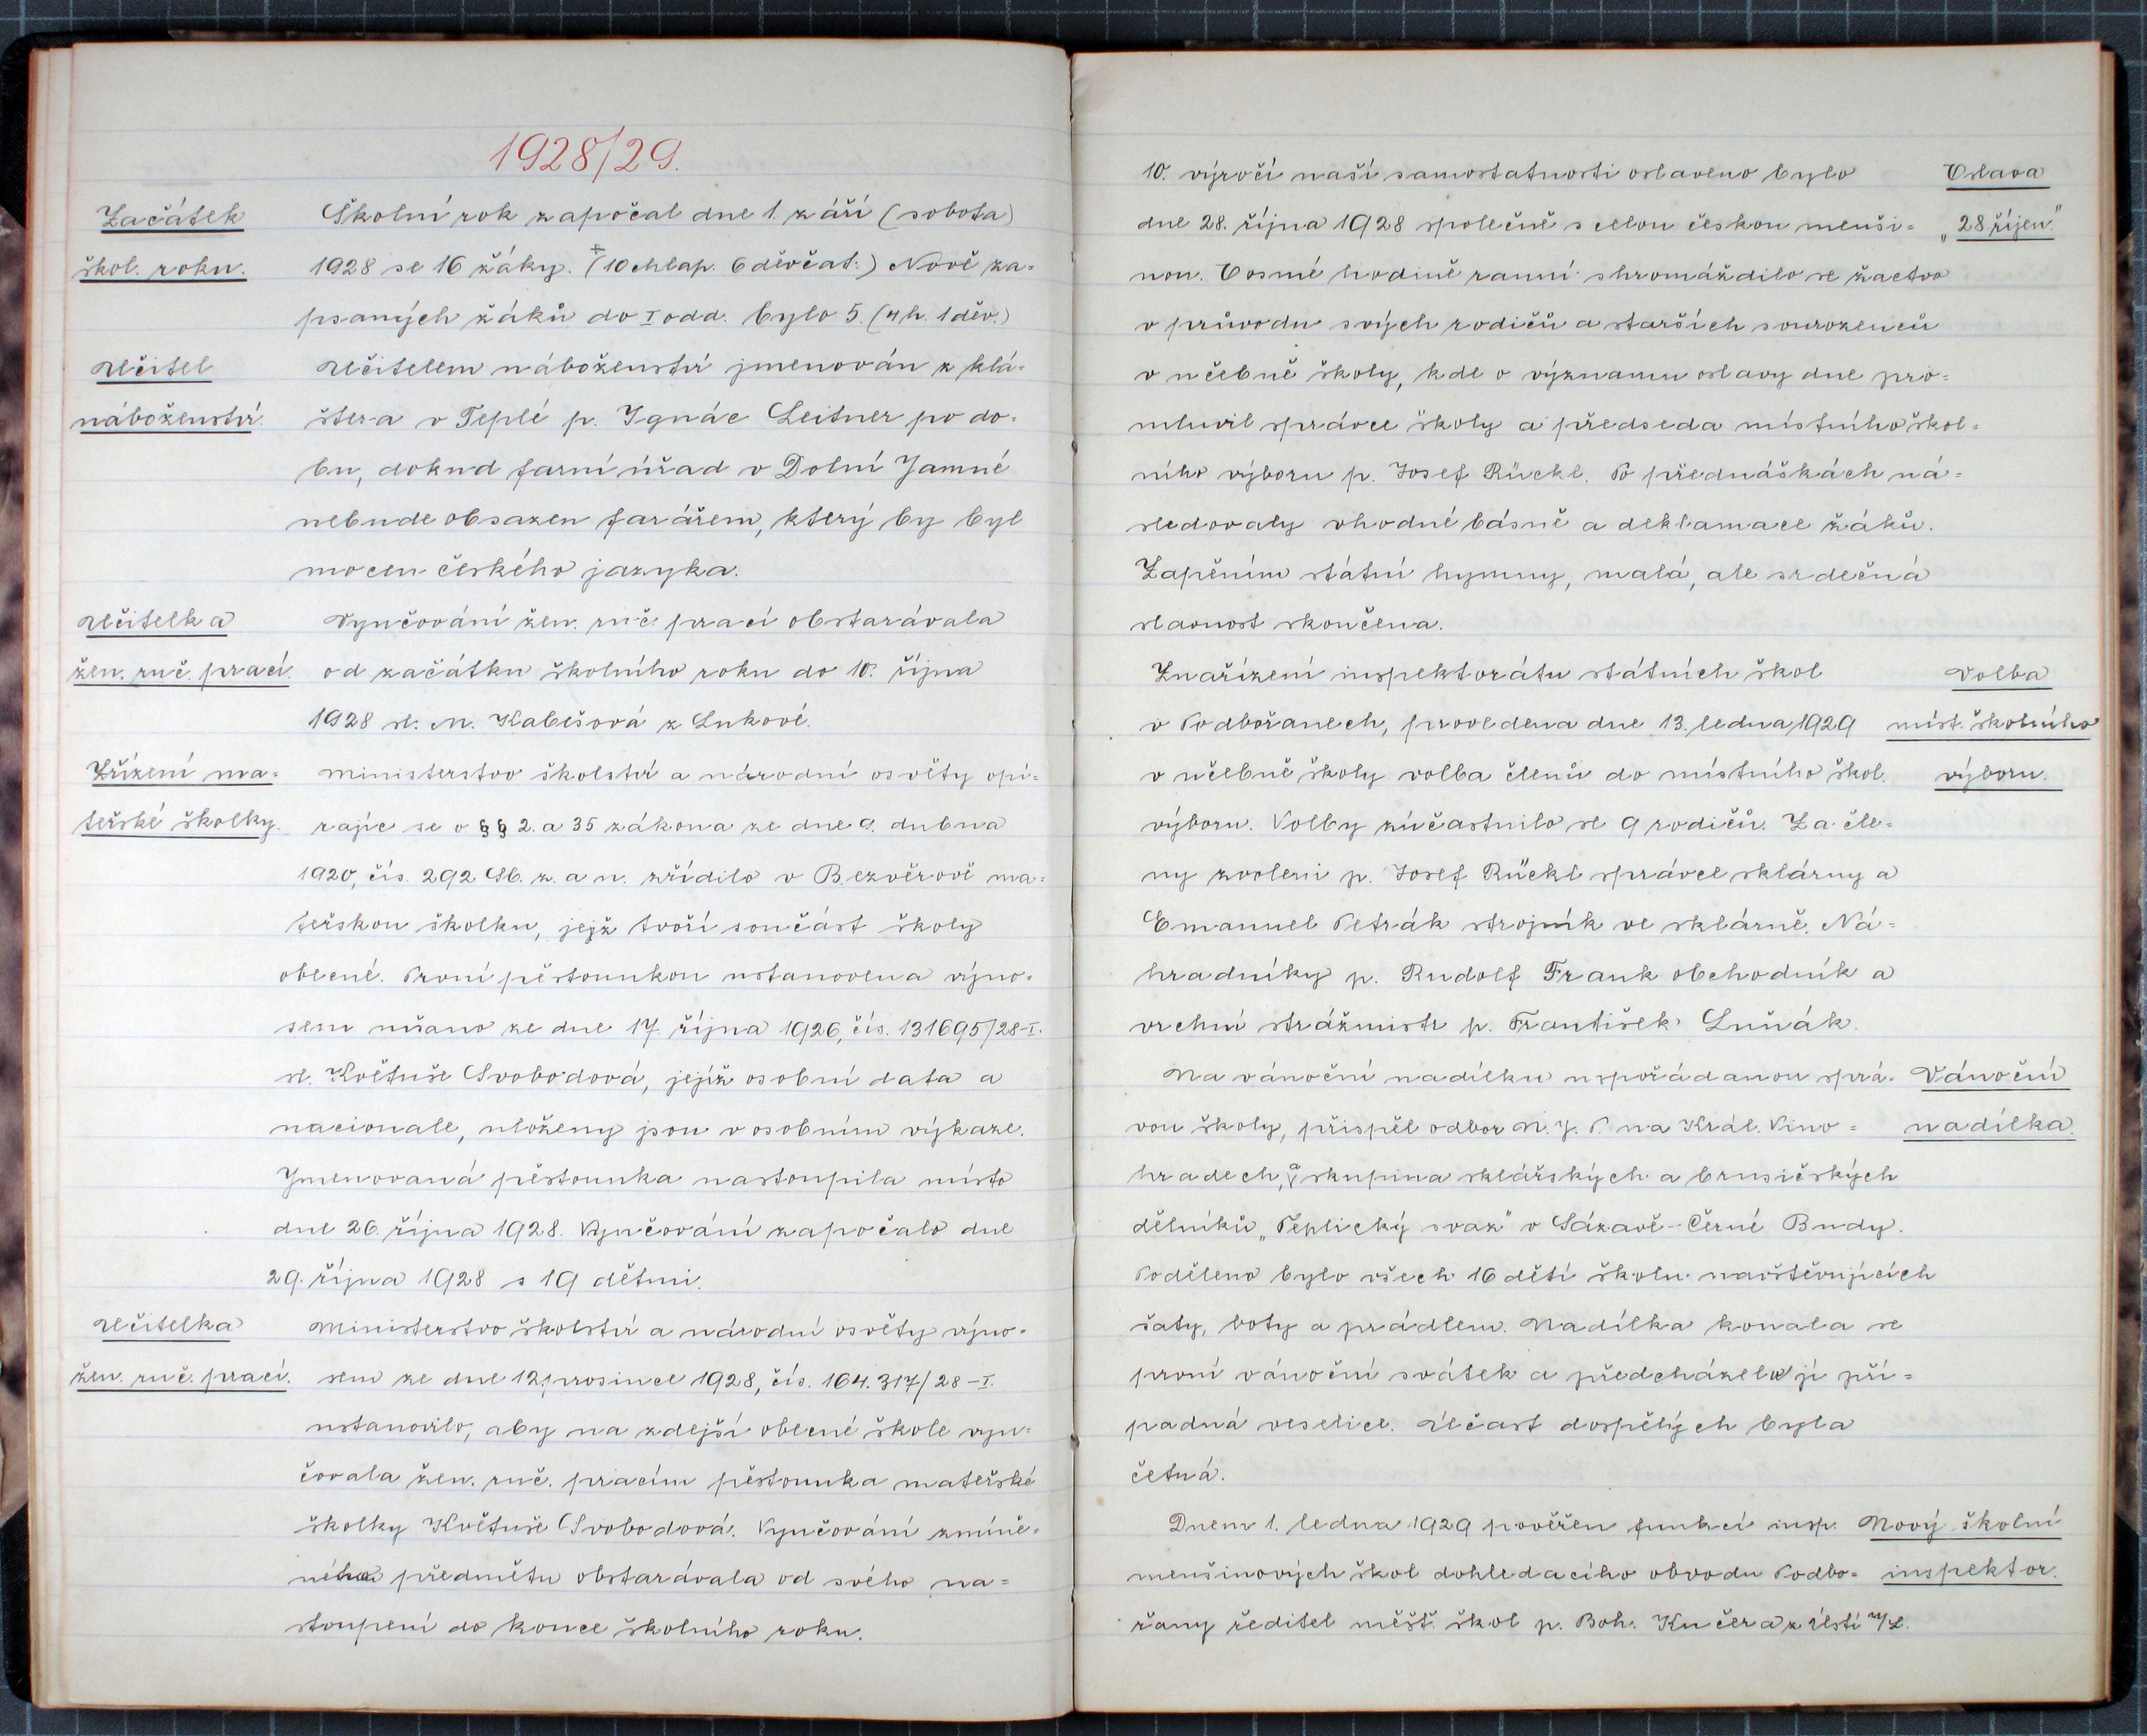 1928/29.
Začátek
škol. roku.
Školní rok započal dne 1. září (sobota)
1928 se 16 žáky. (10 chlap. 6 děvčat.) Nově za=
psaných žáků do I odd. bylo 5. (4 h. 1 děv.)
Učitel
náboženství.
Učitelem náboženství jmenován z klá=
štera v Teplé p. Ignác Leitner po do=
bu, dokud farní úřad v Dolní Jamné
nebude obsazen farářem, který by byl
mocen českého jazyka.
Učitelka
žen. ruč. prací.
Vyučování žen. ruč. prací obstarávala
od začátku školního roku do 10. října
1928 sl. M. Kabešová z Lukové.
Zřízení ma=
teřské školky.
Ministerstvo školství a národní osvěty opí=
rajíc se o §§ 2. a 35 zákona ze dne 9. dubna
1920, čís. 292 Sb. z. a n. zřídilo v Bezvěrově ma=
teřskou školku, jejž tvoří součást školy
obecné. První pěstounkou ustanovena výno=
sem mšano ze dne 17. října 1926, čís. 131695/28-I.
sl. Květuše Svobodová, jejíž osobní data a
nacionale, uloženy jsou v osobním výkaze.
Jmenovaná pěstounka nastoupila místo
dne 26. října 1928. Vyučování započalo dne
29. října 1928 s 19 dětmi.
Učitelka
žen. ruč. prací.
Ministerstvo školství a národní osvěty výno=
sem ze dne 12. prosince 1928, čís. 164.317/28-I.
ustanovilo, aby na zdejší obecné škole vyu=
čovala žen. ruč. pracím pěstounka mateřské
školky Květuše Svobodová. Vyučování zmíně=
ného předmětu obstarávala od svého na=
stoupení do konce školního roku.
Oslava
„28 říjen.“
10. výročí naší samostatnosti oslaveno bylo
dne 28. října 1928 společně s celou českou menši=
nou. V osmé hodině ranní shromáždilo se žactvo
v průvodu svých rodičů a starších sourozenců
v učebně školy, kde o významu oslavy dne pro=
mluvil správce školy a předseda místního škol=
ního výboru p. Josef Rückl. Po přednáškách ná=
sledovaly vhodné básně a deklamace žáků.
Zapěním státní hymny, malá, ale srdečná
slavnost skončena.
Volba
míst. školního
výboru.
Z nařízení inspektorátu státních škol
v Podbořanech, provedena dne 13. ledna 1929
v učebně školy volba členů do místního škol.
výboru. Volby zúčastnilo se 9 rodičů. Za čle=
ny zvoleni p. Josef Rückl správce sklárny a
Emanuel Petrák strojník ve sklárně. Ná=
hradníky p. Rudolf Frank obchodník a
vrchní strážmistr p. František Luňák.
Vánoční
nadílka.
Na vánoční nadílku uspořádanou sprá=
vou školy, přispěl odbor N. J. P. na Král. Vino=
hradech, a skupina sklářských a brusičských
dělníků „Teplický svaz“ v Sázavě-Černé Budy.
Poděleno bylo všech 16 dětí školu navštěvujících
šaty, boty a prádlem. Nadílka konala se
první vánoční svátek a předcházela jí pří=
padná veselice. Účast dospělých byla
četná.
Nový školní
inspektor.
Dnem 1. ledna 1929 pověřen funkcí insp.
menšinových škol dohledacího obvodu Podbo=
řany ředitel měšť. škol p. Boh. Kučera z Ústí n/L.